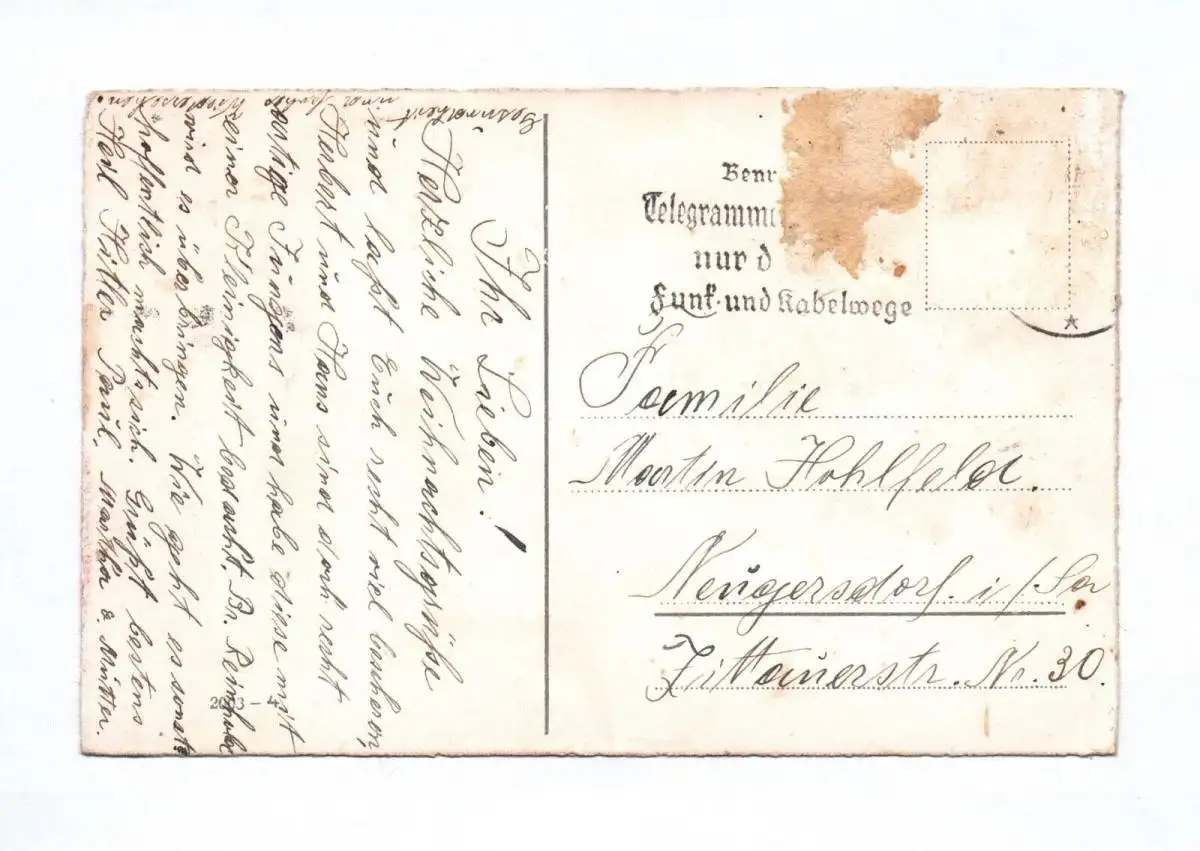 Ihr Lieben!
Herzliche Weihnachtsgrüße
und laßt Euch recht viel bescheren,
Herbert und Hans sind doch recht
artige Jungens und habe diese mit
einer Kleinigkeit bedacht, Br. Reinhold
wird es überbringen. Wie geht es sonst
hoffentlich macht sich. Grüßt bestens
Paul, Martha & Mutter.
Gesundheit
und
Wiedersehen.
2003-4
Telegramm
nur d
Funk- und Kabelwege
Familie
Martin Hohlfeld.
Neugersdorf. i/Sa
Zittauerstr. Nr. 30.